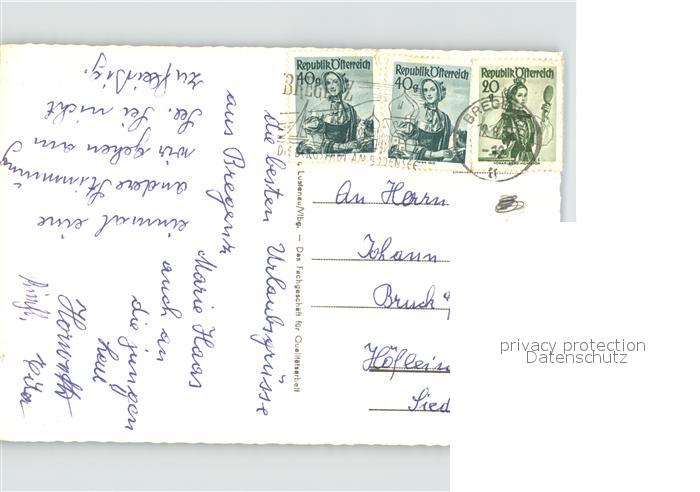 Republik Österreich
40g
Republik Österreich
40g
Republik Österreich
20
BREGENZ
BREGENZ
AM BODENSEE
Lustenau/Vlbg. — Das Fachgeschäft für Qualitätsarbeit
An Herrn
Johann
Bruck
Höflein
Sied
die besten Urlaubsgrüsse
aus Bregenz
Marie Haas
auch an
die jungen
Leut
Horwath
einmal eine
andere Stimmung
wir gehen am
See. Sei nicht
zu fleißig.
privacy protection
Datenschutz